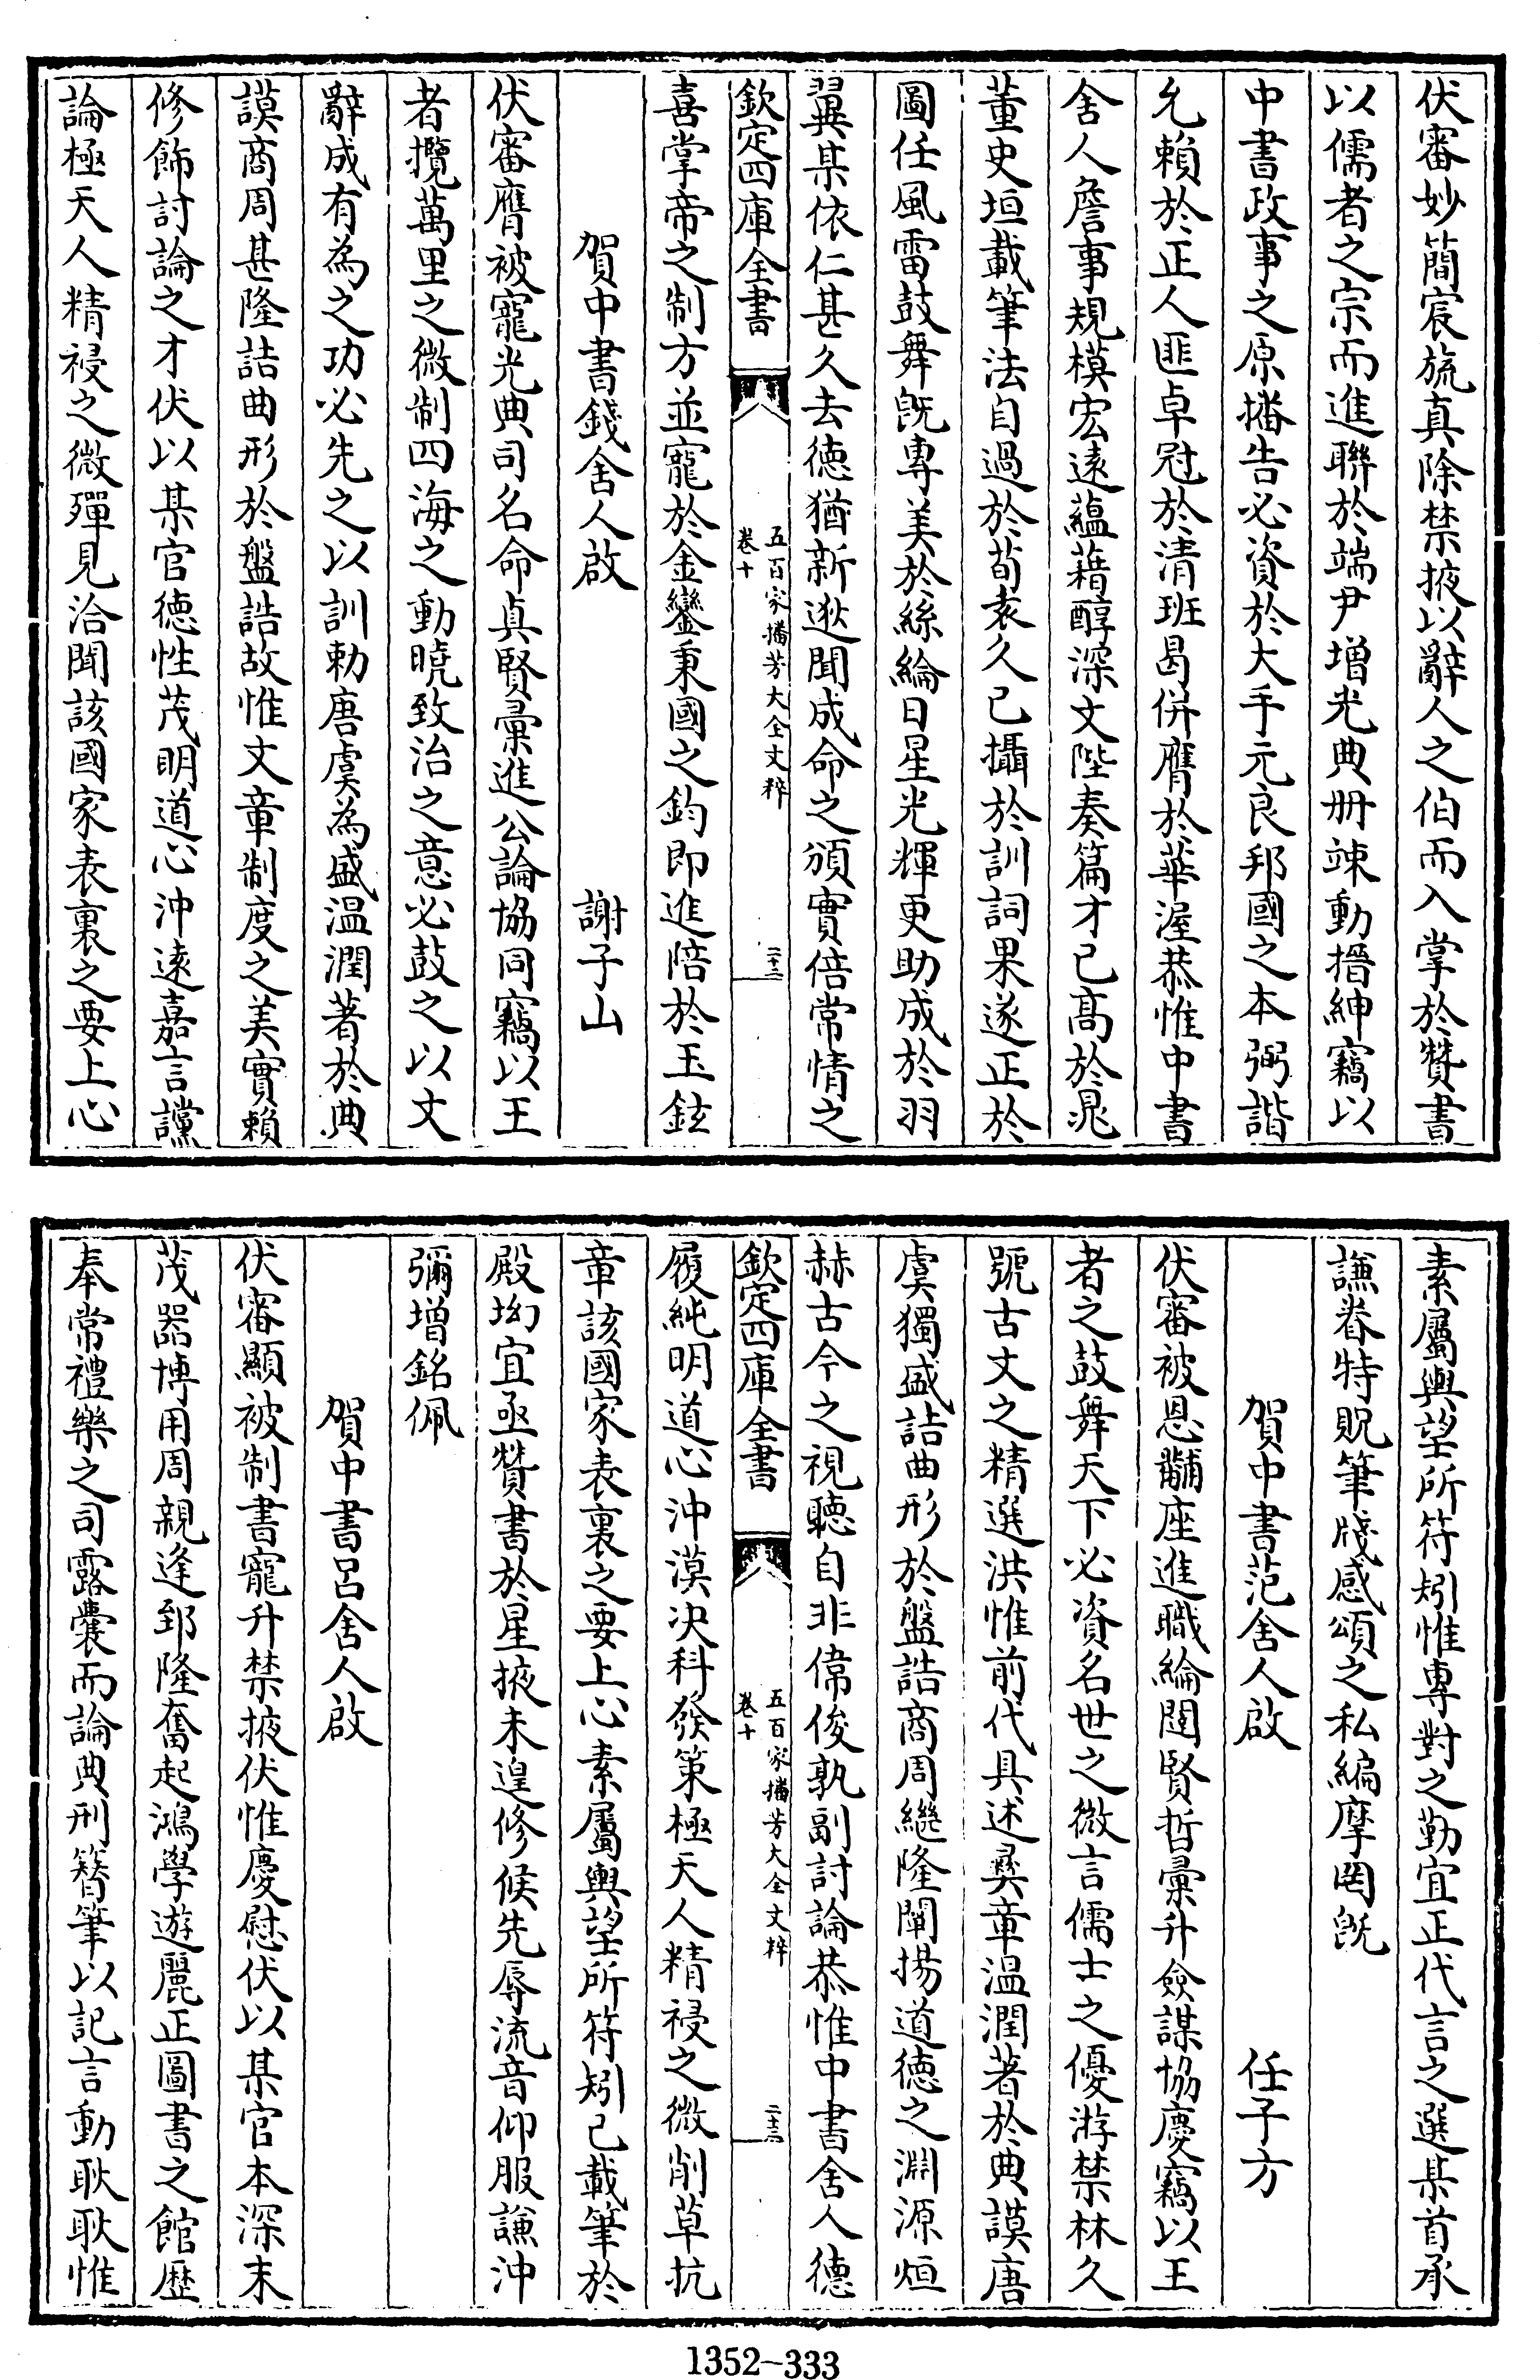 伏審妙簡宸旒真除禁掖以辭人之伯而入掌於贊書
以儒者之宗而進聯於端尹增光典冊竦動搢紳竊以
中書政事之原播告必資於大手元良邦國之本弼諧
允賴於正人匪卓冠於清班曷併膺於華渥恭惟中書
舍人詹事規模宏遠蘊藉醇深文陛奏篇才已高於晁
董史垣載筆法自過於荀袁久已攝於訓詞果遂正於
圖任風雷鼓舞既專美於絲綸日星光輝更助成於羽
翼某依仁甚久去德猶新逖聞成命之頒實倍常情之
欽定四庫全書
五百家播芳大全文粹
卷十
二十二
喜掌帝之制方並寵於金鑾秉國之鈞即進陪於玉鉉
賀中書錢舍人啟 謝子山
伏審膺被寵光典司名命真賢彙進公論協同竊以王
者攬萬里之微制四海之動曉致治之意必鼓之以文
辭成有為之功必先之以訓勅唐虞為盛温潤著於典
謨商周甚隆詰曲形於盤誥故惟文章制度之美實賴
修飾討論之才伏以某官德性茂明道心沖遠嘉言讜
論極天人精祲之微殫見洽聞該國家表裏之要上心
素屬輿望所符矧惟專對之勤宜正代言之選某首承
謙眷特貺筆牋感頌之私編摩罔既
賀中書范舍人啟 任子方
伏審被恩黼座進職綸闈賢哲彙升僉謀協慶竊以王
者之鼓舞天下必資名世之微言儒士之優游禁林久
號古文之精選洪惟前代具述彞章温潤著於典謨唐
虞獨盛詰曲形於盤誥商周繼隆闡揚道德之淵源烜
赫古今之視聽自非偉俊孰副討論恭惟中書舍人德
欽定四庫全書
五百家播芳大全文粹
卷十
二十三
履純明道心沖漠决科發策極天人精祲之微削草抗
章該國家表裏之要上心素屬輿望所符矧已載筆於
殿坳宜亟贊書於星掖未遑修候先辱流音仰服謙沖
彌增銘佩
賀中書呂舍人啟
伏審顯被制書寵升禁掖伏惟慶慰伏以某官本深末
茂器博用周親逢郅隆奮起鴻學遊麗正圖書之館歷
奉常禮樂之司露囊而論典刑簪筆以記言動耿耿惟
1352-333